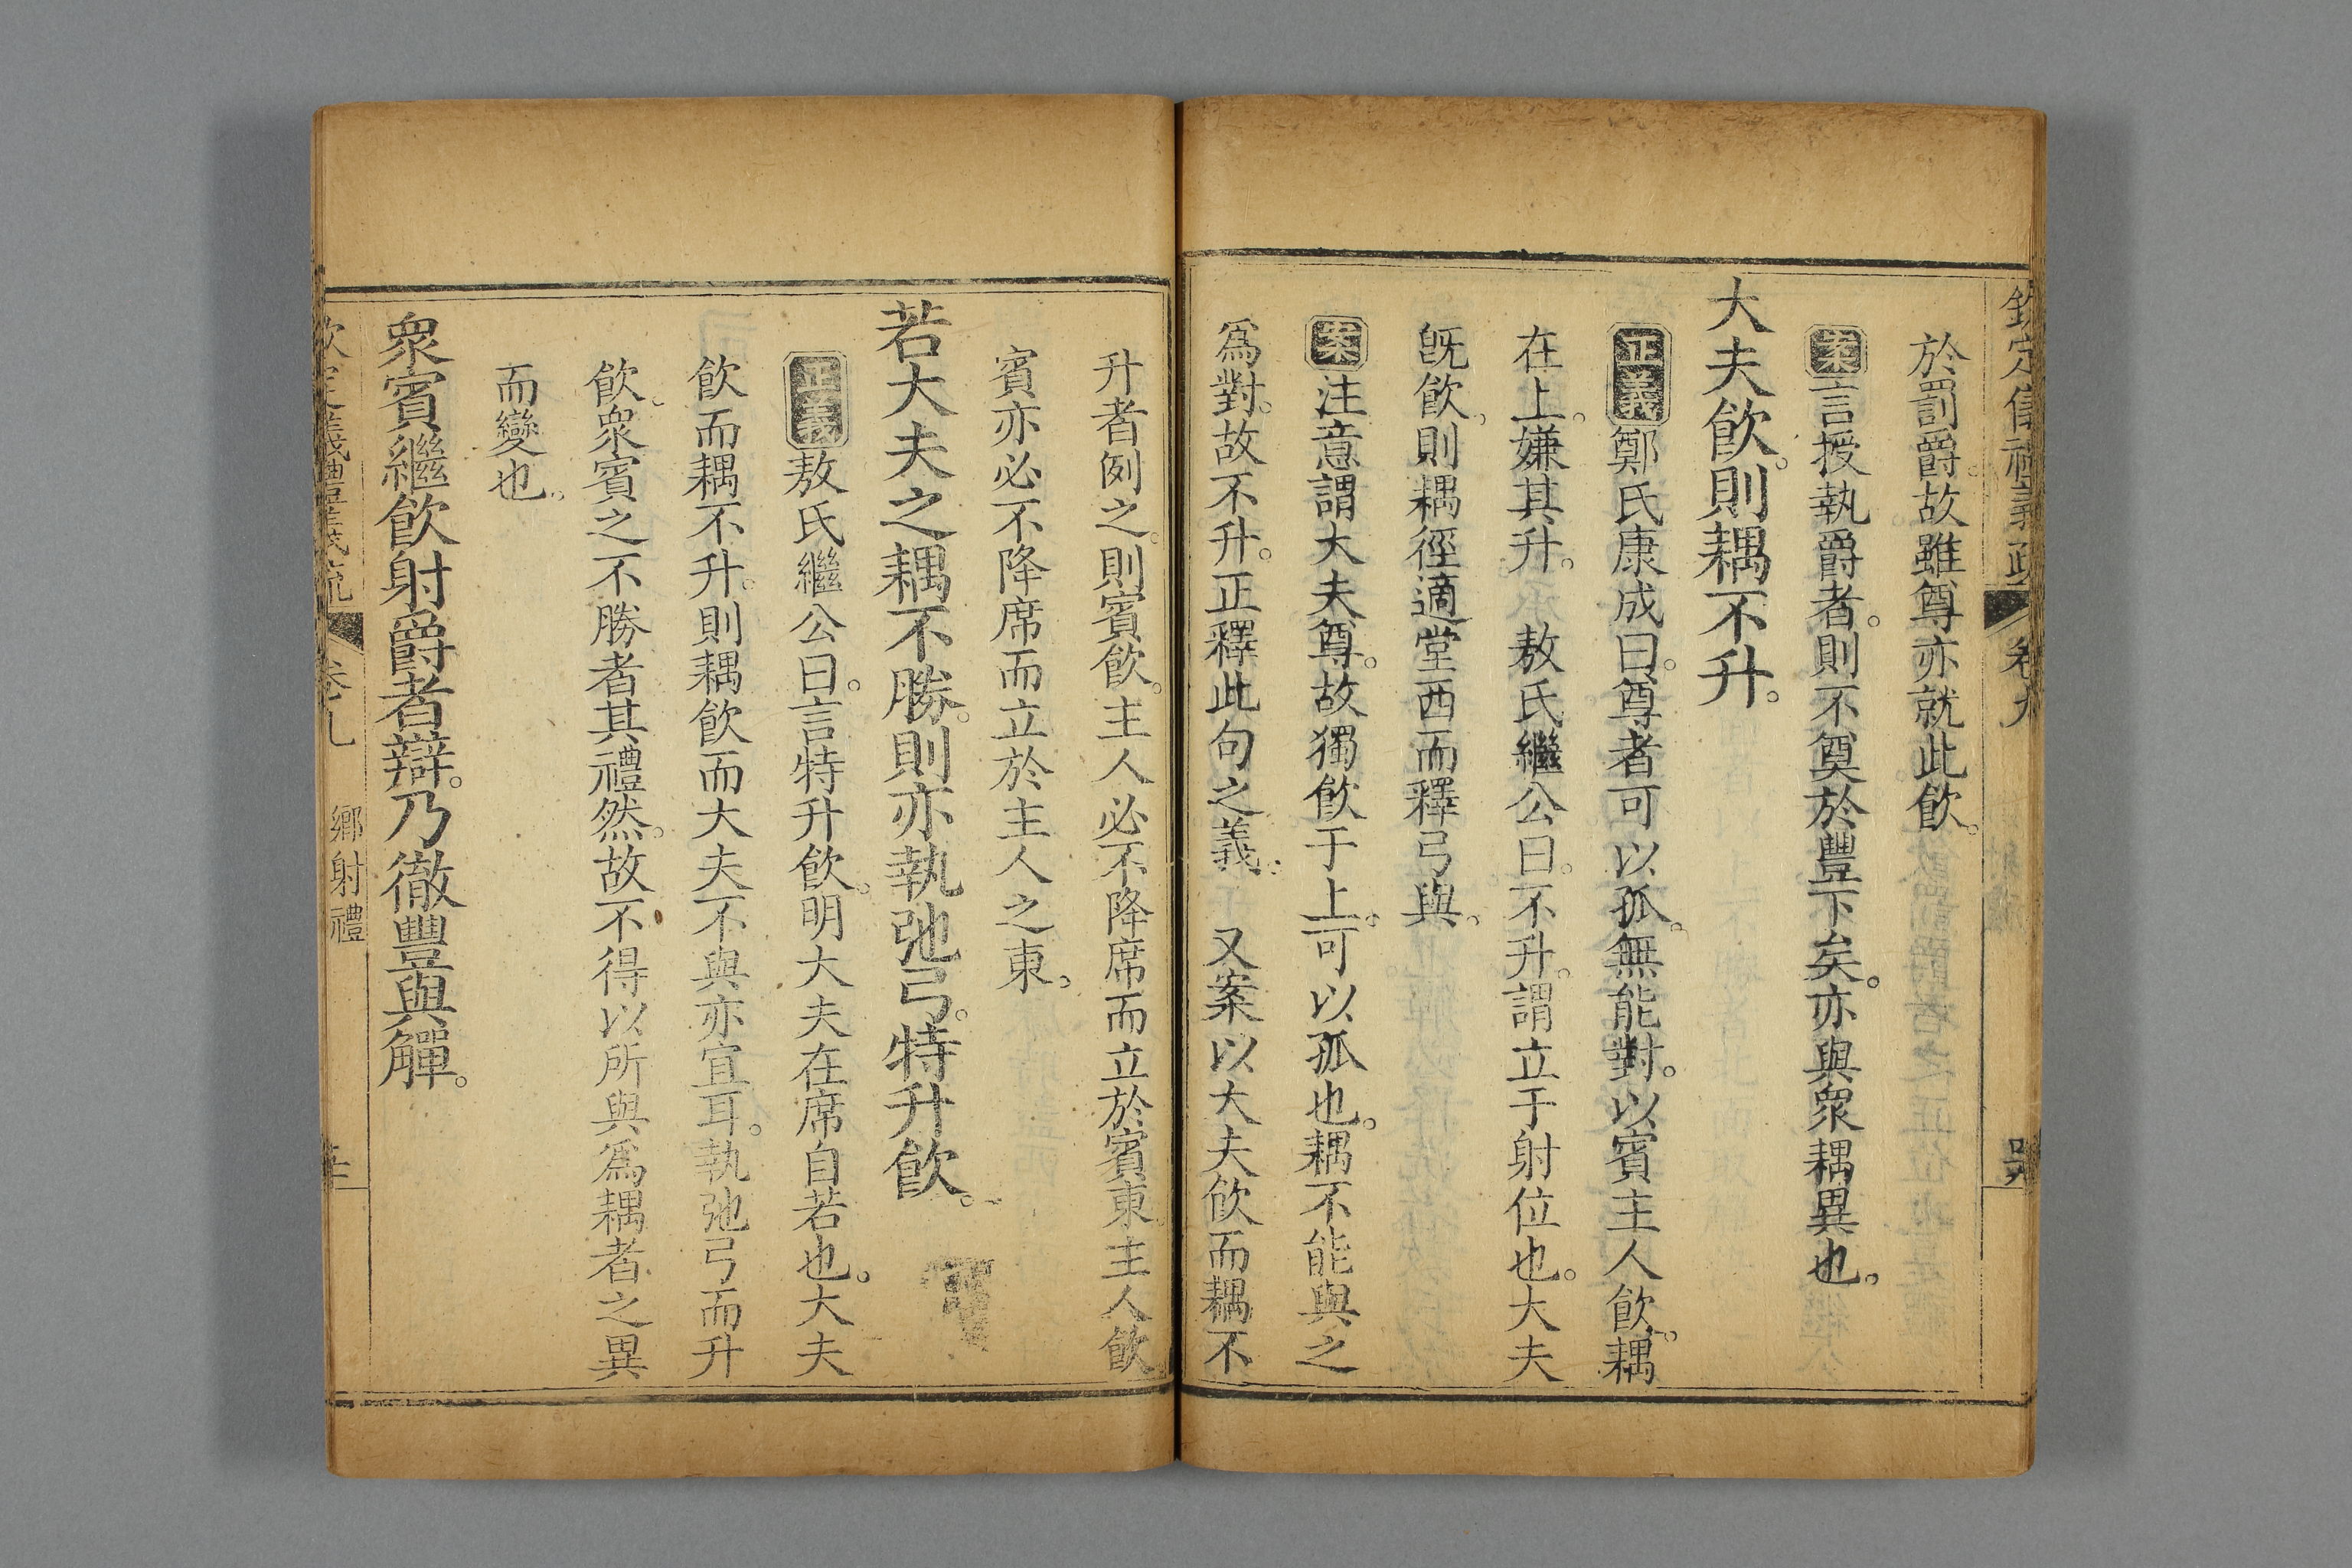 欽定儀禮義疏 卷九
於罰爵。故雖尊亦就此飲。
案言授執爵者。則不奠於豐下矣。亦與衆耦異也。
大夫飲。則耦不升。
正義鄭氏康成曰。尊者可以孤。無能對。以賓主人飲。耦
在上。嫌其升。 敖氏繼公曰。不升。謂立于射位也。大夫
旣飲。則耦徑適堂西而釋弓與。
案注意謂大夫尊。故獨飲于上。可以孤也。耦不能與之
爲對。故不升。正釋此句之義。 又案以大夫飲而耦不
升者例之。則賓飲。主人必不降席而立於賓東。主人飲
賓亦必不降席而立於主人之東。
若大夫之耦不勝。則亦執弛弓。特升飲。
正義敖氏繼公曰。言特升飲。明大夫在席自若也。大夫
飲而耦不升。則耦飲而大夫不與亦宜耳。執弛弓而升
飲。衆賓之不勝者其禮然。故不得以所與爲耦者之異
而變也。
衆賓繼飲射爵者辯。乃徹豐與觶。
欽定儀禮義疏 卷九 鄉射禮